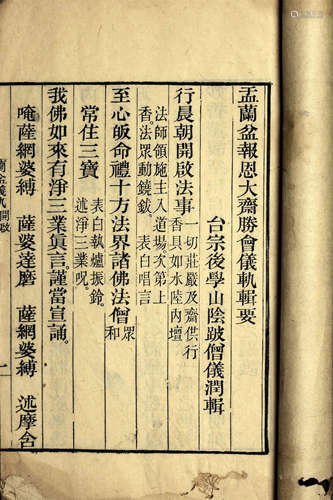 盂蘭盆報恩大齋勝會儀軌輯要
台宗後學山陰跛僧儀潤輯
行晨朝開啟法事 一切莊嚴及齋供行香具如水陸內壇
法師領施主入道場次第上香。法眾動鐃鈸。 表白唱言
至心皈命禮十方法界諸佛法僧 眾和
常住三寶 表白執爐振鈴。述淨三業呪。
我佛如來有淨三業眞言謹當宣誦。
唵薩網婆縛 薩婆達磨 薩網婆縛 述摩含
一